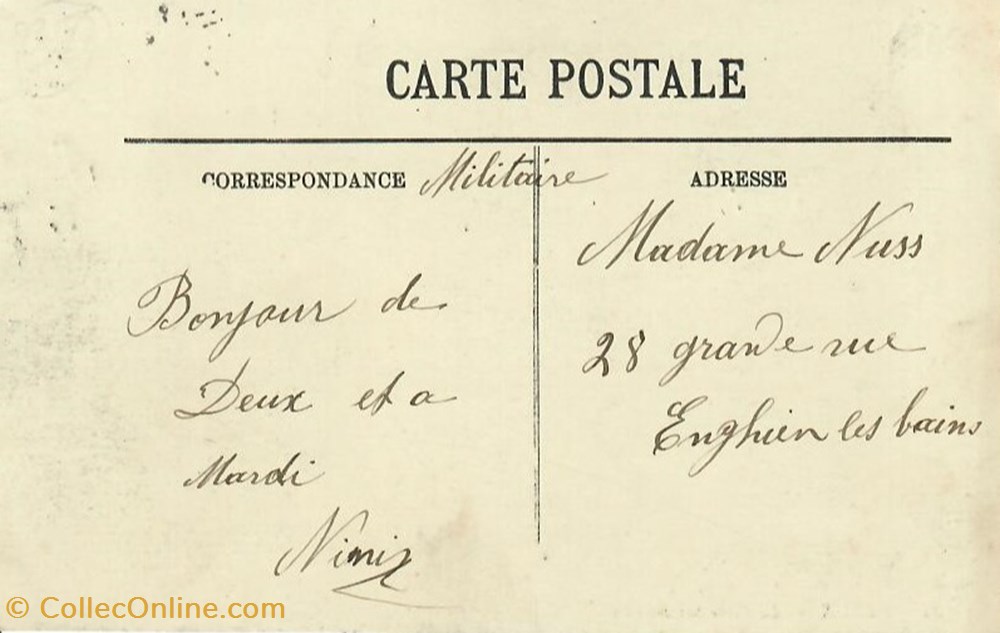 CARTE POSTALE
CORRESPONDANCE Militaire
Bonjour de
Deux et a
Mardi
ADRESSE
Madame Nuss
28 grande rue
Enghien les bains
© CollecOnline.com